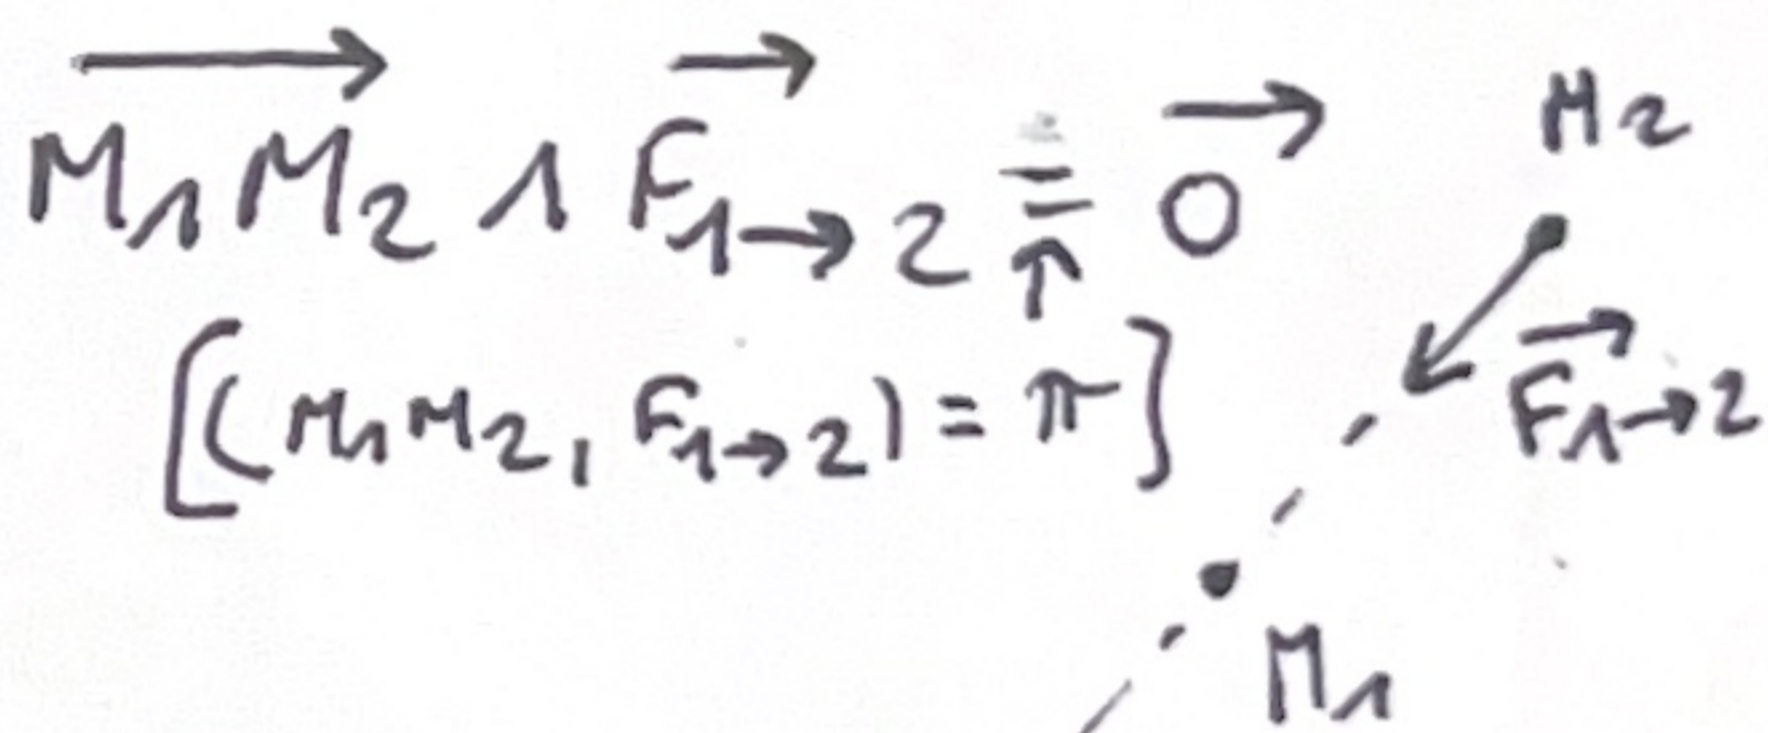 M₁M₂ ∧ F₁→₂ = 0
↑
[(M₁M₂, F₁→₂) = π]
M₂
F₁→₂
M₁